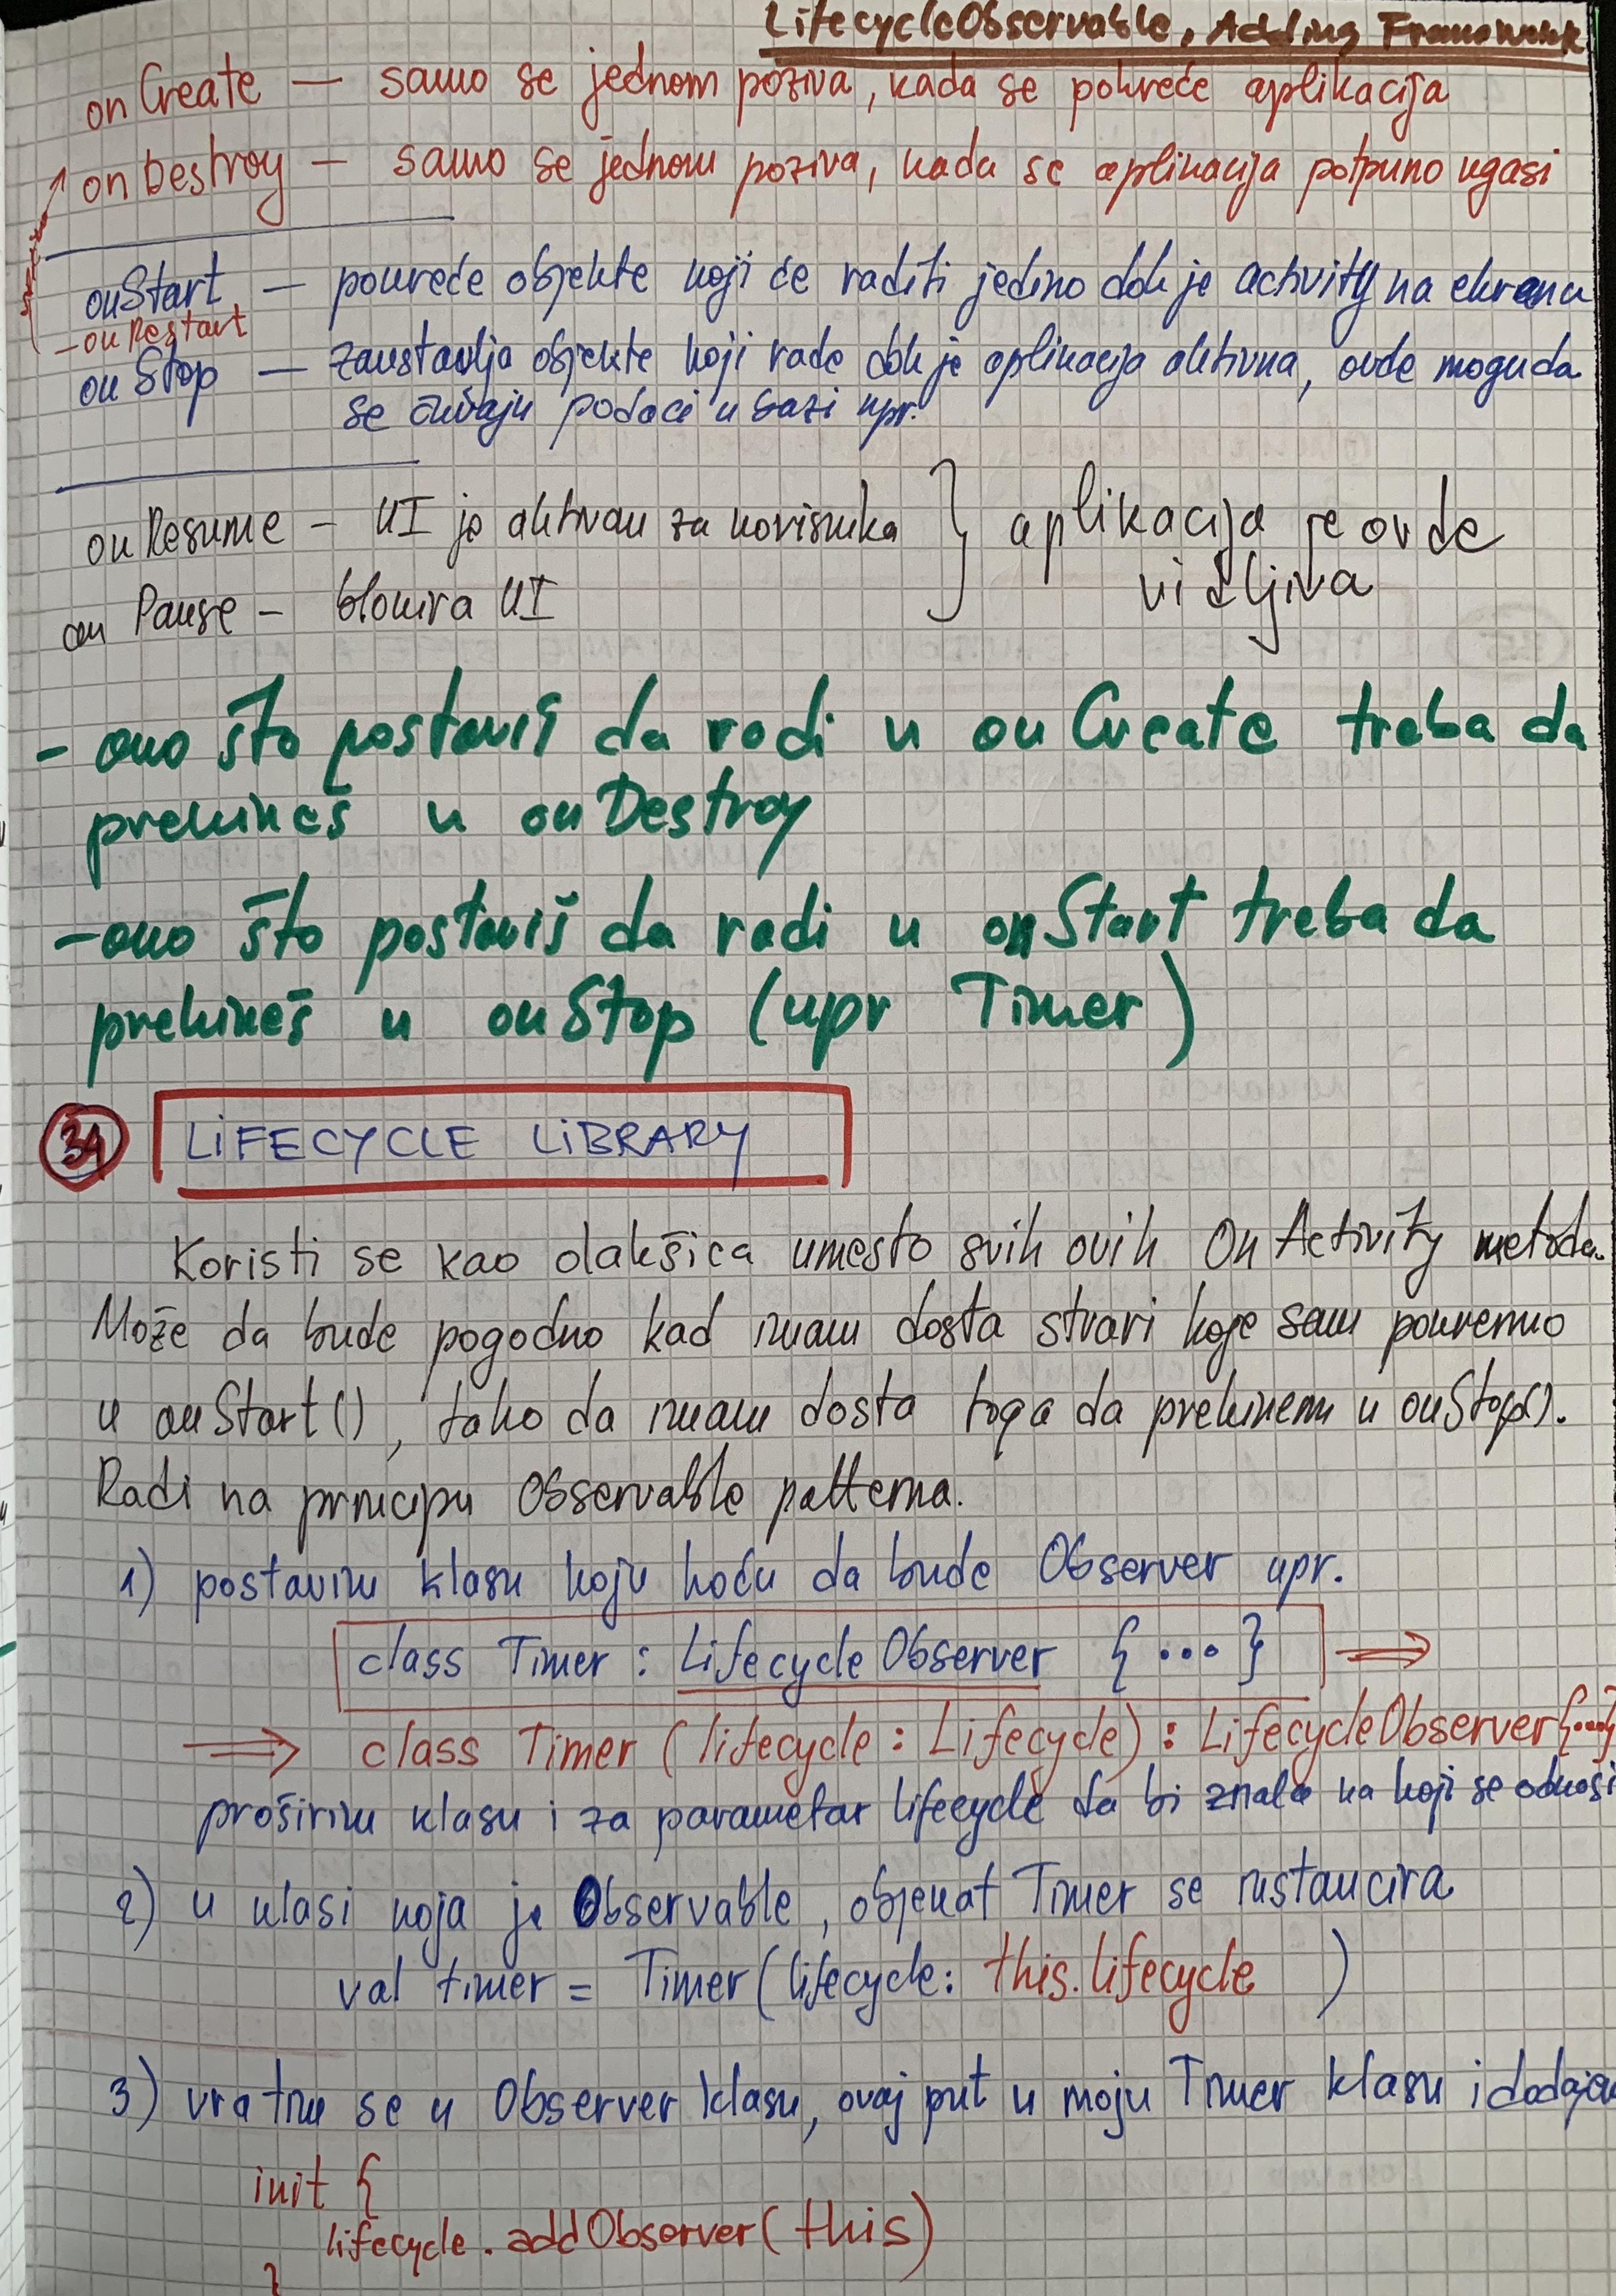 LifecycleObservable, Adding Framework
onCreate — samo se jednom poziva, kada se pokreće aplikacija
onDestroy — samo se jednom poziva, kada se aplikacija potpuno ugasi
onStart — pokreće objekte koji će raditi jedino dok je activity na ekranu
- onRestart
onStop — zaustavlja objekte koji rade dok je aplikacija aktivna, ovde mogu da
se čuvaju podaci u bazi npr.
onResume — UI je aktivan za korisnika } aplikacija je ovde
vidljiva
onPause — blokira UI
- ono što postaviš da radi u onCreate treba da
prekineš u onDestroy
- ono što postaviš da radi u onStart treba da
prekineš u onStop (npr Timer)
34 LIFECYCLE LIBRARY
Koristi se kao olakšica umesto svih ovih On Activity metoda.
Može da bude pogodno kad imam dosta stvari koje sam pokrenuo
u onStart(), tako da imam dosta toga da prekinem u onStop().
Radi na principu Observable patterna.
1) postavim klasu koju hoću da bude Observer npr.
class Timer : LifecycleObserver { ... } ⇒
⇒ class Timer (lifecycle : Lifecycle) : LifecycleObserver{...}
proširim klasu i za parametar lifecycle da bi znala na koji se odnosi
2) u klasi koja je Observable, objekat Timer se instancira
val timer = Timer(lifecycle: this.lifecycle )
3) vratim se u Observer klasu, ovaj put u moju Timer klasu i dodajem
init {
lifecycle.addObserver(this)
}